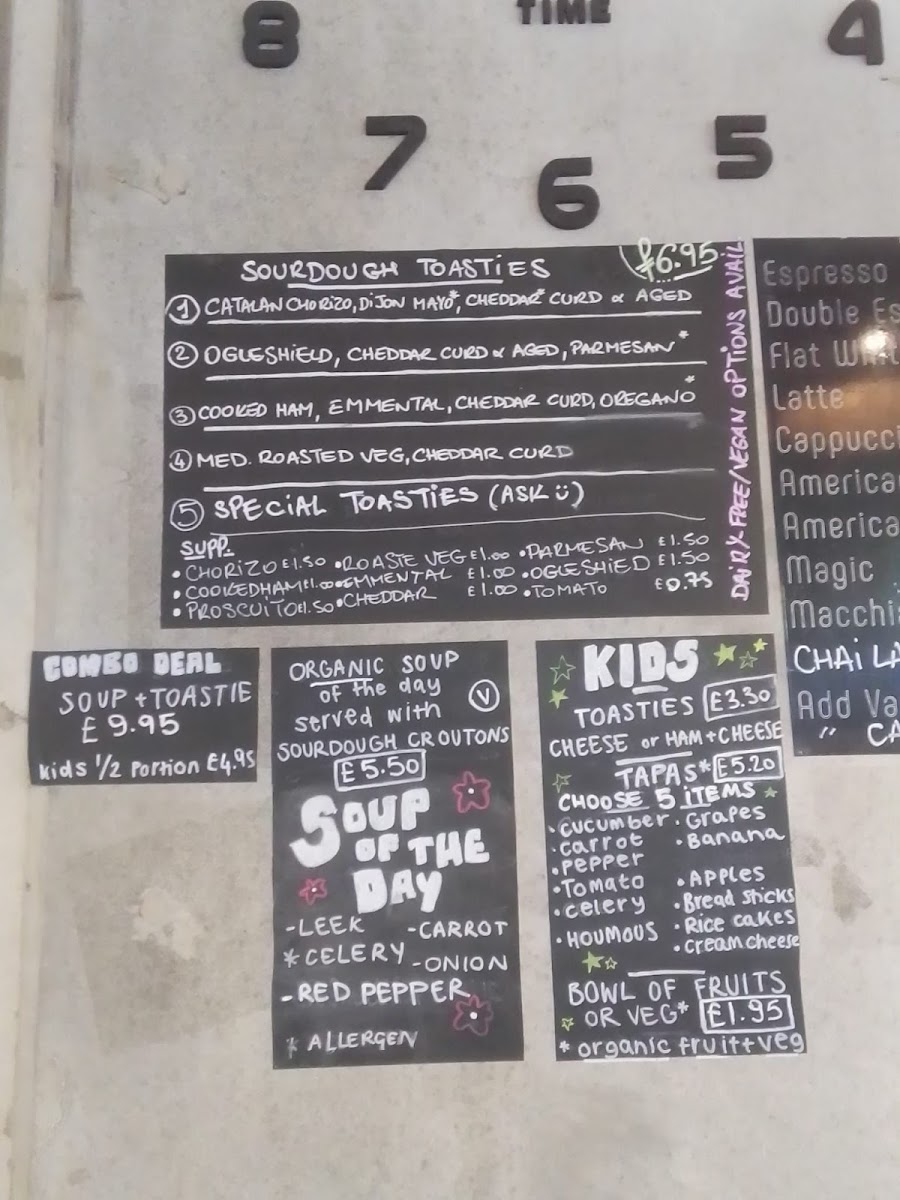 TIME
8
4
7
5
6
SOURDOUGH TOASTIES
£6.95
① CATALAN CHORIZO, DIJON MAYO*, CHEDDAR* CURD & AGED
② OGLESHIELD, CHEDDAR CURD & AGED, PARMESAN*
③ COOKED HAM, EMMENTAL, CHEDDAR CURD, OREGANO*
④ MED. ROASTED VEG, CHEDDAR CURD
⑤ SPECIAL TOASTIES (ASK ü)
SUPP.
• CHORIZO £1.50 • ROASTE VEG £1.00 • PARMESAN £1.50
• COOKED HAM £1.00 • EMMENTAL £1.00 • OGLESHIED £1.50
• PROSCUITO £1.50 • CHEDDAR £1.00 • TOMATO £0.75
DAIRY FREE/VEGAN OPTIONS AVAIL.
Espresso
Double Es
Flat Whit
Latte
Cappucci
America
America
Magic
Macchi
CHAI LA
Add Va
" CA
COMBO DEAL
SOUP + TOASTIE
£9.95
Kids 1/2 PORTION £4.95
ORGANIC SOUP
of the day
served with
Ⓥ
SOURDOUGH CROUTONS
£5.50
SOUP
OF THE
DAY
- LEEK - CARROT
* CELERY - ONION
- RED PEPPER
* ALLERGEN
KIDS
TOASTIES £3.30
CHEESE or HAM + CHEESE
TAPAS* £5.20
CHOOSE 5 ITEMS
• cucumber • Grapes
• carrot • Banana
• Pepper
• Tomato • Apples
• celery • Bread sticks
• HOUMOUS • Rice cakes
• cream cheese
BOWL OF FRUITS
OR VEG* £1.95
* organic fruit + veg